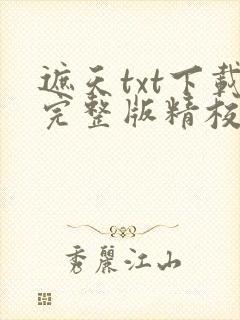 遮天txt下載
完整版精校
秀麗江山